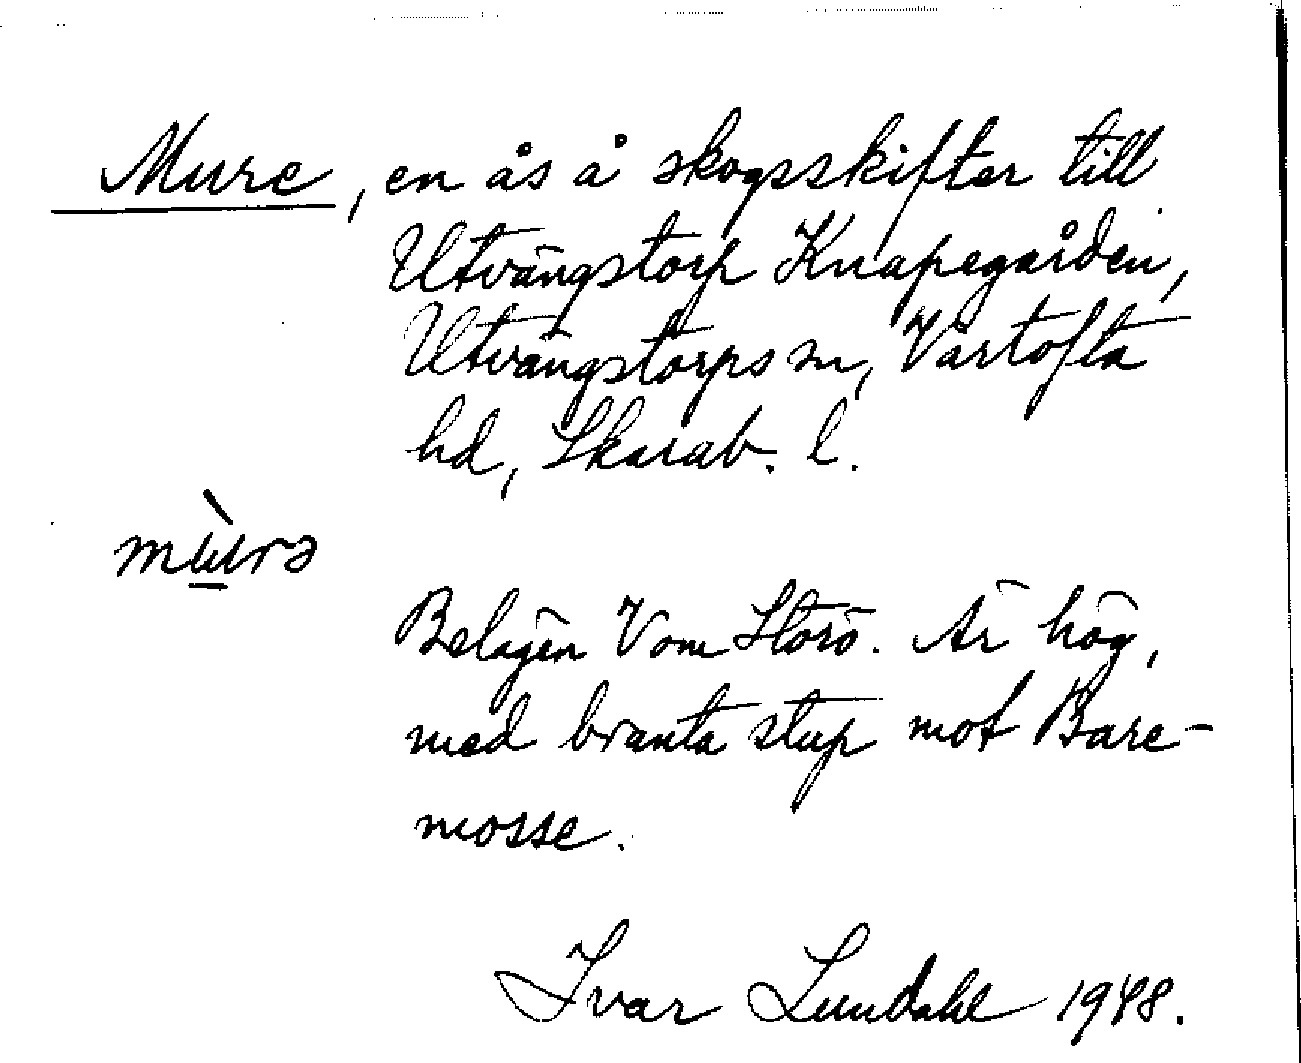 Mure, en ås å skogsskifter till
Utvängstorp Knapegården,
Utvängstorps sn, Vartofta
hd, Skarab. l.
mùrə
Belägen V om Storö. Är hög,
med branta stup mot Bare-
mosse.
Ivar Lundahl 1948.